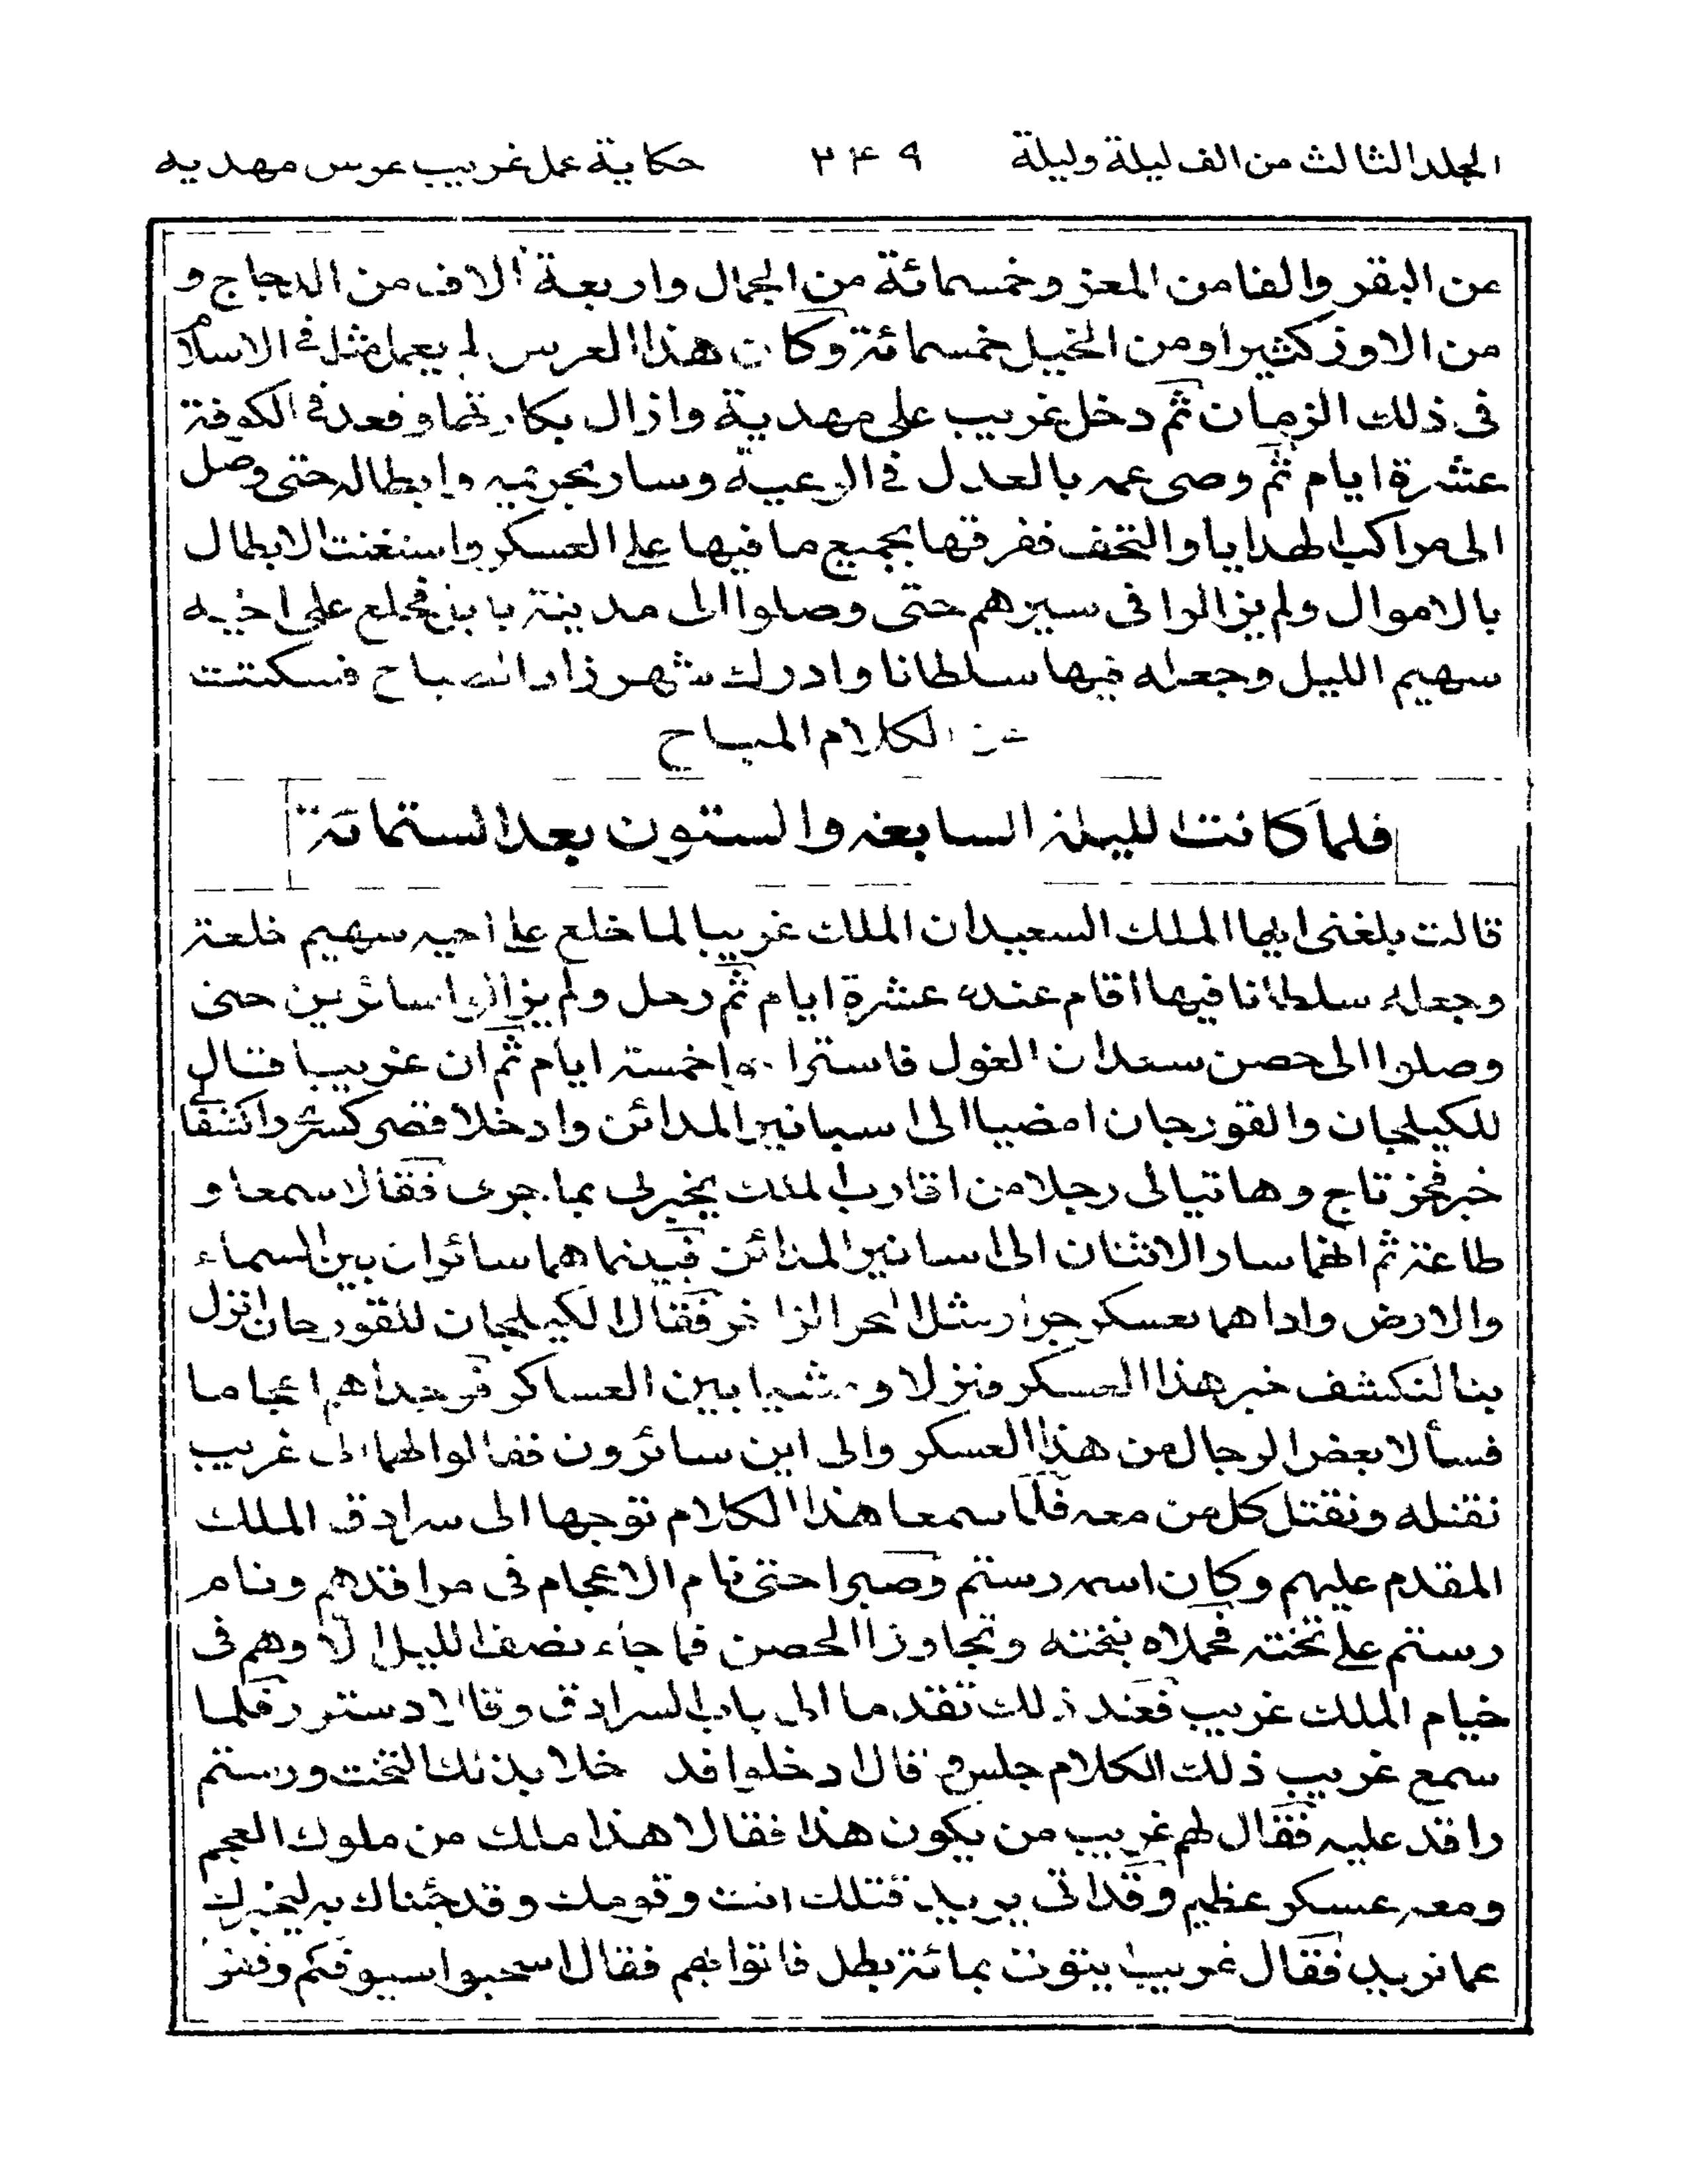 المجلد الثالث من الف ليلة وليلة ٢٤٩ حكاية عمل غريب عرس مهديه
عن البقر والفا من المعز وخمسمائة من الجمال واربعة الاف من الدجاج و
من الاوز كثيرا ومن الخيل خمسمائة وكان هذا العرس لم يعمل مثله فى الاسلام
فى ذلك الزمان ثم دخل غريب على مهدية وازال بكارتها وقعد فى الكوفة
عشرة ايام ثم وصى عمه بالعدل فى الرعية وسار بحريمه وابطاله حتى وصل
الى مراكب الهدايا والتحف ففرقها بجميع ما فيها على العسكر واستغنت الابطال
بالاموال ولم يزالوا فى سيرهم حتى وصلوا الى مدينة بابل فخلع على اخيه
سهيم الليل وجعله فيها سلطانا وادرك شهرزاد الصباح فسكتت
عن الكلام المباح
فلما كانت الليلة السابعة والستون بعد الستمائة
قالت بلغنى ايها الملك السعيد ان الملك غريبا لما خلع على اخيه سهيم خلعة
وجعله سلطانا فيها اقام عنده عشرة ايام ثم رحل ولم يزالوا سائرين حتى
وصلوا الى حصن سعدان الغول فاستراحوا خمسة ايام ثم ان غريبا قال
للكيلجان والقورجان امضيا الى اسبانير المدائن وادخلا قصر كسرى واكشفا لى
خبر فخر تاج وهاتيا لى رجلا من اقارب الملك يخبرنى بما جرى فقالا سمعا و
طاعة ثم انهما سار الاثنان الى اسبانير المدائن فبينما هما سائران بين السماء
والارض واذا هما بعسكر جرار مثل البحر الزاخر فقال الكيلجان للقورجان انزل
بنا لنكشف خبر هذا العسكر فنزلا ومشيا بين العساكر فوجداهم اعجاما
فسألا بعض الرجال من هذا العسكر والى اين سائرون فقالوا لهما الى غريب
نقتله ونقتل كل من معه فلما سمعا هذا الكلام توجها الى سرادق الملك
المقدم عليهم وكان اسمه رستم وصبرا حتى نام الاعجام فى مراقدهم ونام
رستم على تخته فحملاه بتخته وتجاوزا الحصن فما جاء نصف الليل الا وهم فى
خيام الملك غريب فعند ذلك تقدما الى باب السرادق وقالا دستور فلما
سمع غريب ذلك الكلام جلس وقال ادخلوا فدخلا بذلك التخت ورستم
راقد عليه فقال لهم غريب من يكون هذا فقالا هذا ملك من ملوك العجم
ومعه عسكر عظيم وقد اتى يريد قتلك انت وقومك وقد جئناك به ليخبرك
عما تريد فقال غريب ايتونى بمائة بطل فاتوا بهم فقال اسحبوا سيوفكم وقفوا